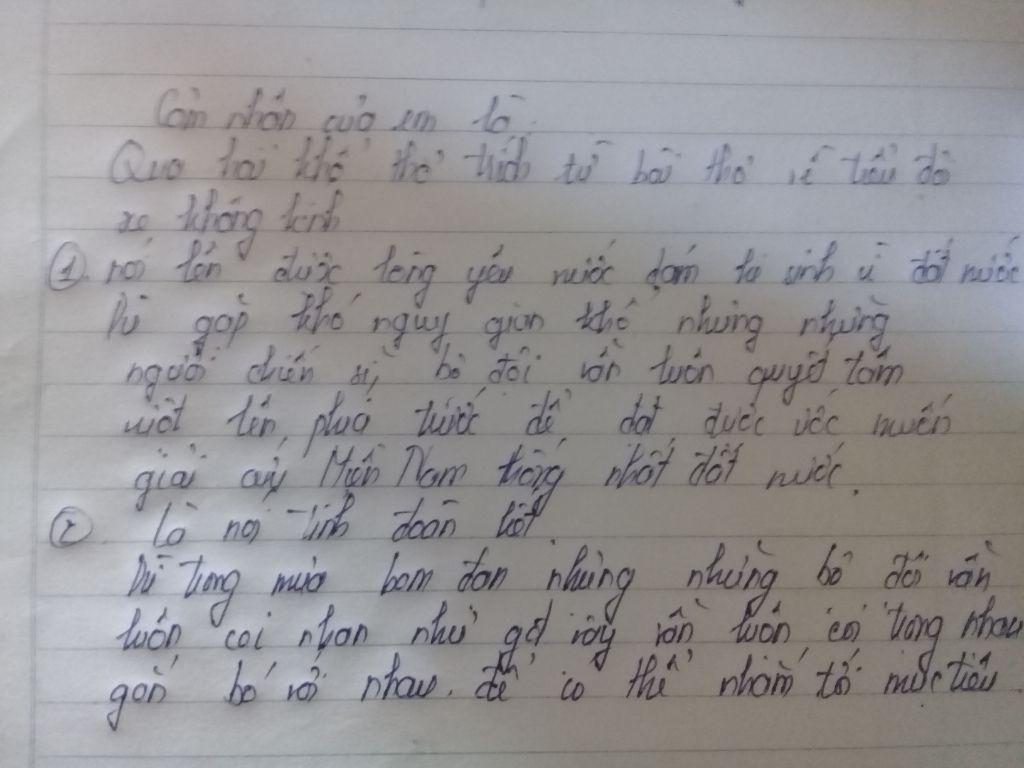 Cảm nhận của em là.
Qua hai khổ thơ trích từ bài thơ về tiểu đội
xe không kính
① nói lên được lòng yêu nước dám hi sinh vì đất nước
Dù gặp khó nguy gian khổ nhưng những
người chiến sĩ, bộ đội vẫn luôn quyết tâm
vượt lên, phía trước để đạt được ước muốn
giải Miền Nam thống nhất đất nước.
② Là nói tình đoàn kết.
Dù trong mưa bom đạn nhưng những bộ đội vẫn
luôn coi nhau như vậy vẫn luôn coi trọng nhau
gắn bó với nhau. để có thể nhằm tới mục tiêu.